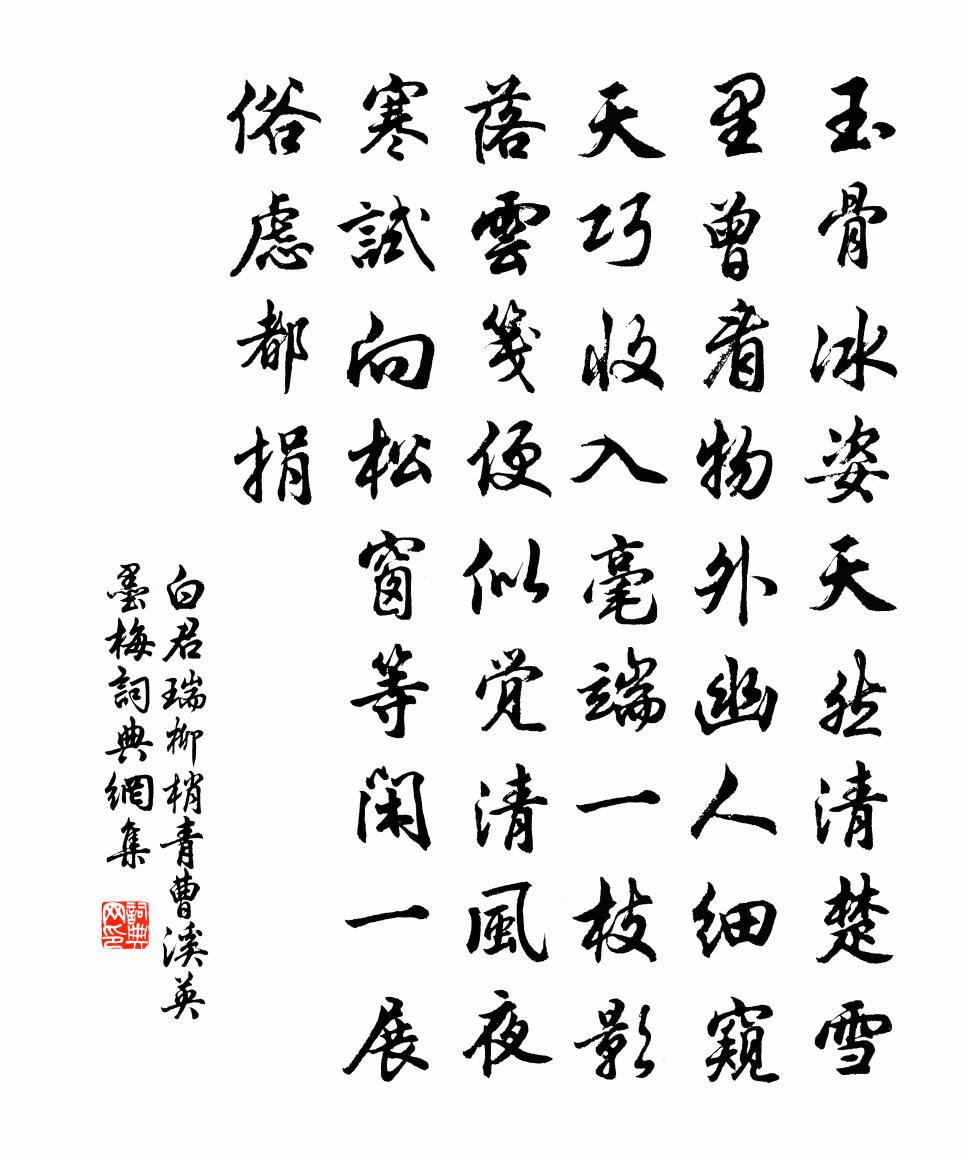 玉骨冰姿天然清楚雪
里曾看物外幽人细窺
天巧收入毫端一枝影
落雲箋便似觉清風夜
寒試向松窗等闲一展
俗慮都捐
白君瑞柳梢青曹溪英
墨梅詞典網集
詞典网印